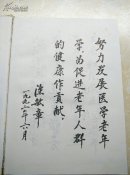 努力发展医学老年
学，为促进老年人群
的健康作贡献。
陈敏章
一九九二年六月